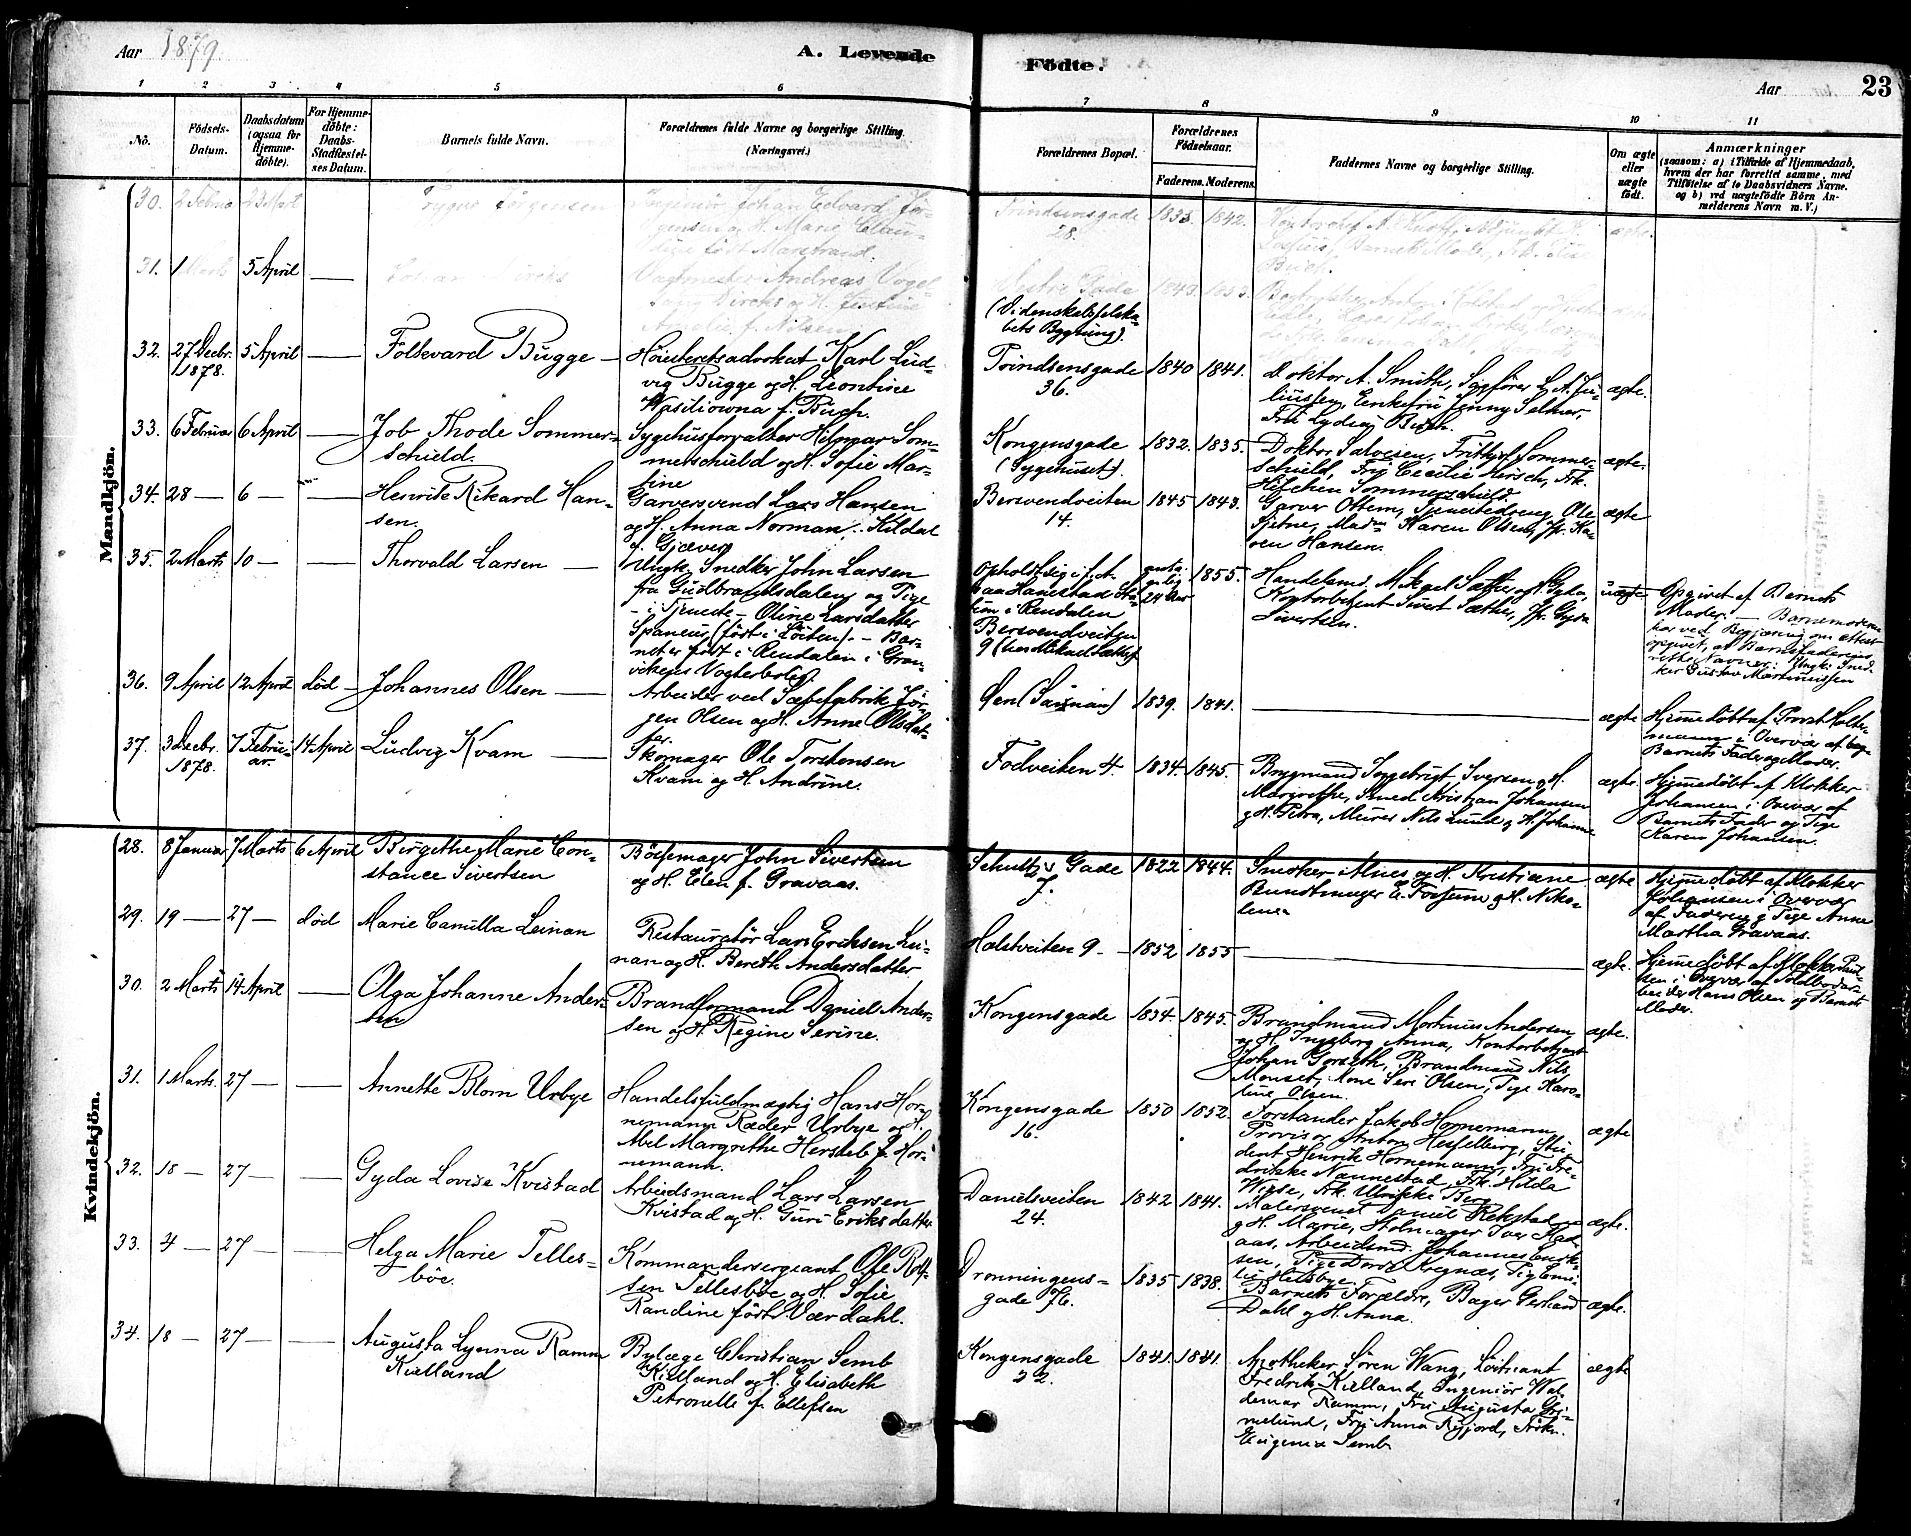 Aar 1879.
A. Levende
Födte.
Aar
23
1 2 3 4 5 6
7 8 9 10 11
No.
Födsels-Datum.
Daabsdatum (ogsaa for Hjemme-döbte).
For Hjemme-döbte: Daabs-Stadfæstel-ses Datum.
Barnets fulde Navn.
Forældrenes fulde Navne og borgerlige Stilling. (Næringsvei.)
Forældrenes Bopæl.
Forældrenes Födselsaar.
Faderens. Moderens.
Faddernes Navne og borgerlige Stilling.
Om ægte eller uægte födt.
Anmærkninger
(saasom: a) i Tilfælde af Hjemmedaab, hvem der har forrettet samme, med Tilföielse af to Daabsvidners Navne. og b) ved uægtefödte Börn An-melderens Navn m. V.)
Mandkjön.
30. 2 Februar 23 Mart Trygve Jørgensen
Ingeniør Johan Edvard Jör-
gensen og H. Marie Clau-
dine født Marstrand.
Trindsensgade
28.
1833. 1842.
ægte.
31. 1 Marts 5 April —
Vagtmester Andreas Vogel-
sang Dircks og H. Justine
Amalie f. Nilsen
Vestre Gade
(Videnskabsselska-
bets Bygning).
1843. 1853.
32. 27 Decbr. 1878. 5 April — Folkvard Bugge —
Høiesteretsadvokat Karl Lud-
vig Bugge og H. Leontine
Wasiliowna f. Buch.
Trindsensgade
36.
1840 1841.
Doktor A. Smith, Sagfører L. A. Ju-
liussen, Enkefru Jenny Selmer,
Frk. Lydia Buch.
ægte.
33. 6 Februar 6 April — Job Thode Sommer-
schield.
Sygehusforvalter Hilmar Som-
merschield og H. Sofie Mar-
tine
Kongensgade
(Sygehuset).
1832. 1835.
Doktor Salvesen, Frithjof Sommer-
schield, Frk. Cecilie Hirsch, Frk.
Sommerschield.
ægte.
34. 28 — 6 — — Henrik Rikard Han-
sen.
Garversvend Lars Hansen
og H. Anna Norman, Kildal
f. Gjæver
Bersvendveiten
14.
1845 1843.
Garver Ottem, Tjenestedreng Ole
Sjetne, Madm Karen Olsen, Jfr. Ka-
ren Hansen.
ægte
35. 2 Marts 10 — — Thorvald Larsen —
Ungk. Snedker John Larsen
fra Gudbrandsdalen og Pige
— i Tjeneste — Oline Larsdatter
Spaneus, (født i Löiten). — Bar-
net er født i Rendalen i Gran-
vikens Vogterbolig.
Opholdt sig i f. A.
paa Hanestad Sta-
tion i Rendalen
Bersvendveiten
9 (hos Mikael Sæther)
24 Aar 1855.
Handelsmd. Mikael Sæther og H. Gyda,
Kontorbetjent Sivert Sæther, Jfr. Gyda
Sivertsen.
uægte
Opgivet af Barnets
Moder. — Barnemoderen
har ved Begjæring om attest
opgivet, at Barnefaderens
rette Navn er: Ungk. Sned-
ker Gustav Martinussen
36. 9 April 12 April död — Johannes Olsen —
Arbeider ved Sæbefabrik Jör-
gen Olsen og H. Anne Olsdat-
ter.
Øen (Saxnan)
1839. 1841.
ægte
Hjemmedøbt af Provst
i Overvær af
Barnets Fader og Moder.
37. 3 Decbr. 1878. 7 Februar. 14 April Ludvig Kvam —
Skomager Ole Torstensen
Kvam og H. Andrine.
Fodveiten 4.
1834. 1845.
Brygmand Ingebrigt Iversen og H.
Margrethe, Smed Kristian Johansen
og H. Petra, Murer Nils Lund og H. Johanne
ægte.
Hjemmedøbt af Klokker
Johansen i Overvær af
Barnets Fader og Pige
Karen Johansen.
Kvindekjön.
28. 8 Januar 7 Marts 6 April Birgithe Marie Con-
stance Sivertsen
Bössemager John Sivertsen
og H. Elen f. Gravaas.
Schultz's Gade
7.
1822 1844.
Snedker Alnes og H. Kristiane
Buntmager E. Forsum og H. Niko-
line
ægte
Hjemmedøbt af Klokker
Johansen i Overvær
af Faderen og Pige Anne
Martha Gravaas.
29. 19 — 27 — död Marie Camilla Leinan
Restauratör Lars Eriksen Lei-
nan og H. Bereth Andersdatter
Holstveiten 9 —
1852 1855
ægte.
Hjemmedøbt af Klokker Poul-
sen i Overvær af Toldbodar-
beider Hans Olsen og Barnets
Moder.
30. 2 Marts 14 April — Olga Johanne Ander-
sen
Brandformand Daniel Ander-
sen og H. Regine Serine.
Kongensgade
1834. 1845.
Brandmand Martinus Andersen
og H. Ingeborg Anna, Kontorbetjent
Johan Forseth, Brandmand Nils
Monset, Kone Seri Olsen, Pige Karo-
line Olsen.
ægte.
31. 1 Marts. 27 — — Annette Blom Urbye
Handelsfuldmægtig Hans Hor-
nemann Ræder Urbye og H.
Abel Margrethe Hersleb f. Hor-
nemann.
Kongensgade
16.
1850 1852.
Forstander Jakob Hornemann
Provisor Anton Hesselberg, Stu-
dent Henrik Hornemann, Fru Fre-
drikke Nannestad, Frk. Hilda
Wirse, Frk. Ulrikke Berg
ægte
32. 18 — 27 — — Gyda Lovise Kvistad
Arbeidsmand Lars Larsen
Kvistad og H. Guri Eriksdatter.
Danielsveiten
24.
1842 1841.
Malersvend Daniel Rekstad
og H. Marie,
Arbeidsmd. Johannes
ægte.
33. 4 — 27 — Helga Marie Telles-
böe.
Kommandersergeant Ole Rolf-
sen Tellesböe og H. Sofie
Randine født Værdahl.
Dronningens-
gade 76.
1835 1838.
Barnets Forældre, Bager Gerhard
Dahl og H. Anna.
ægte.
34. 18 — 27 — — Augusta Lyenna Ramm
Kielland
Bylæge Christian Semb
Kielland og H. Elisabeth
Petronelle f. Ellefsen
Kongensgade
22.
1841. 1841.
Apotheker Sören Wang, Löitnant
Fredrik Kielland, Ingeniör Wal-
demar Ramm, Fru Augusta Gri-
melund, Fru Anna Rygjord, Frøkn.
Eugenia Semb
ægte